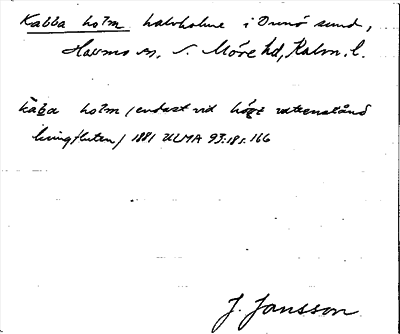 Kabba holm halvholme i Drnö sund,
Hossmo sn, S. Möre hd, Kalm. l.
kàba holm (endast vid högt vattenstånd
kringfluten) 1881 ULMA 93:18 s. 166
J. Jansson